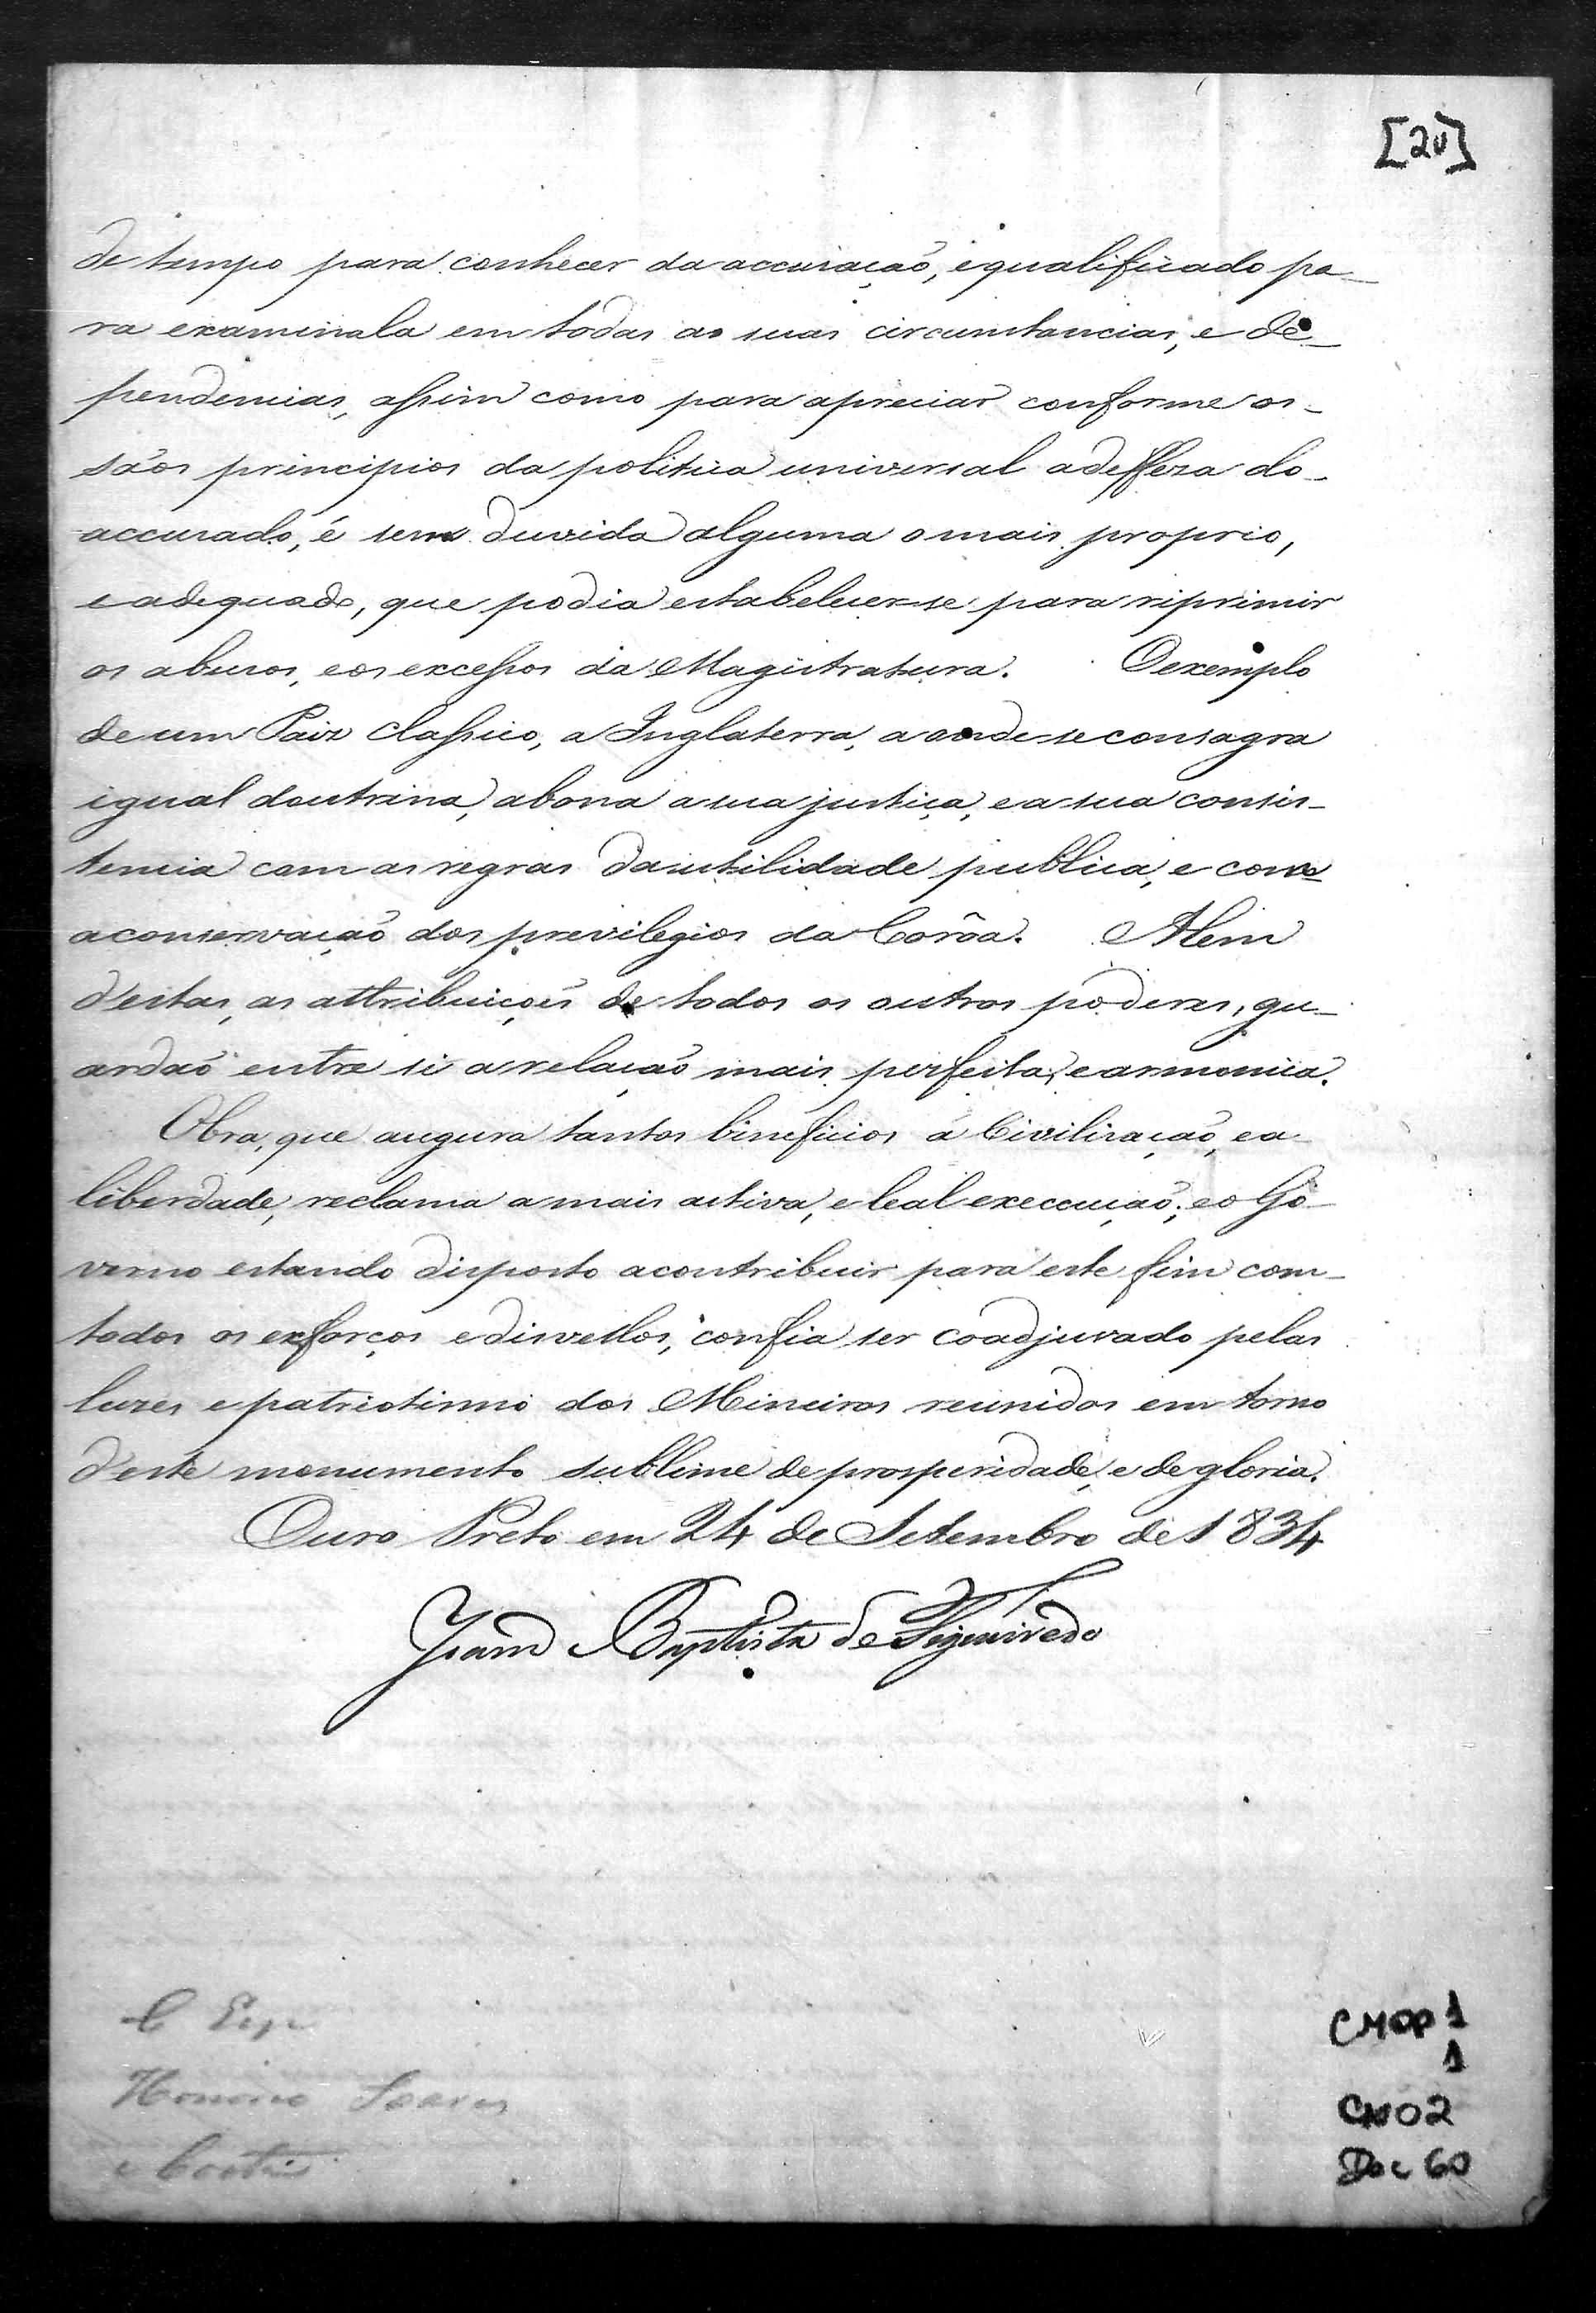 [2v]
de tempo para conhecer da accusação, e qualificado pa-
ra examinala em todas as suas circumstancias, e de-
pendencias, assim como para apreciar conforme os-
sãos principios da politica universal a deffeza do-
accusado, é sem duvida alguma o mais proprio,
e adequado, que podia estabelecer-se para riprimir
os abusos, e os excessos da Magistratura. O exemplo
de um Paiz classico, a Inglaterra, a onde se consagra
igual doutrina, abona a sua justiça, e a sua consis-
tencia com as regras da utilidade publica, e com
a conservação dos previlegios da Corôa. Alem
d'estas, as attribuições de todos os outros poderes, gu-
ardaõ entre si a relação mais perfeita, e armonica.
Obra, que augura tantos binificios á Civilisação, e a
liberdade, reclama a mais activa, e leal execução; e o Go-
verno estando disposto a contribuir para este fim com-
todos os exforços e disvellos, confia ser coadjuvado pelas
luzes e patriotismo dos Mineiros reunidos em torno
d'este monumento sublime de prosperidade, e de gloria.
Ouro Preto em 24 de Setembro de 1834
Joam Baptista de Figueiredo
CMOP 1
1
CX02
Doc 60
Soares